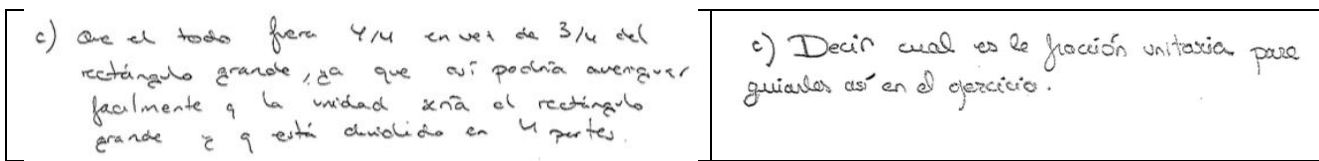 c) Que el todo fuera 4/4 en vez de 3/4 del
rectángulo grande, ya que así podría averiguar
facilmente q la unidad sería el rectángulo
grande y q está dividido en 4 partes.
c) Decir cual es la fracción unitaria para
guiarles así en el ejercicio.